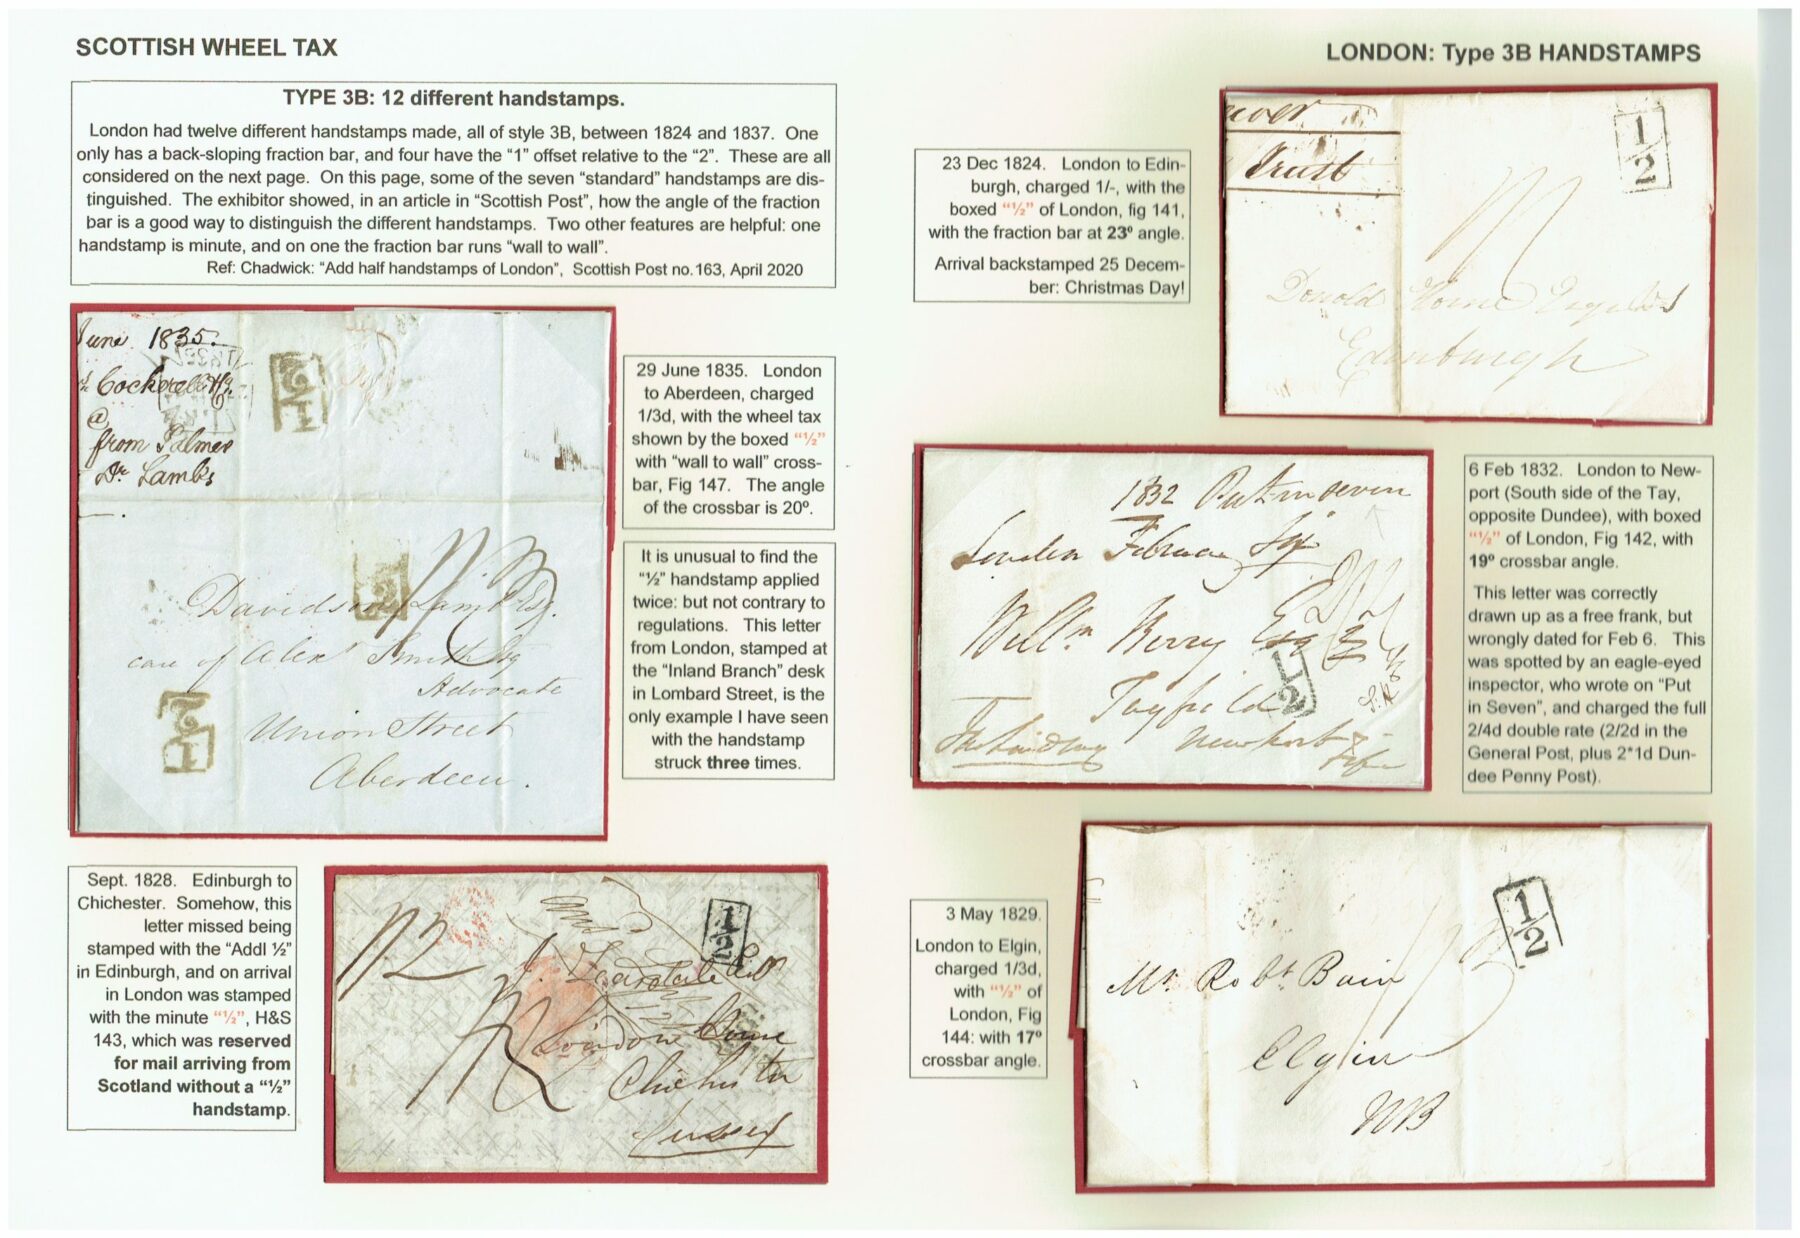 SCOTTISH WHEEL TAX
LONDON: Type 3B HANDSTAMPS
TYPE 3B: 12 different handstamps.
London had twelve different handstamps made, all of style 3B, between 1824 and 1837. One
only has a back-sloping fraction bar, and four have the “1” offset relative to the “2”. These are all
considered on the next page. On this page, some of the seven “standard” handstamps are dis-
tinguished. The exhibitor showed, in an article in “Scottish Post”, how the angle of the fraction
bar is a good way to distinguish the different handstamps. Two other features are helpful: one
handstamp is minute, and on one the fraction bar runs “wall to wall”.
Ref: Chadwick: “Add half handstamps of London”, Scottish Post no.163, April 2020
June 1835.
Cockerell
@
from Palmer
Lambs
1/2
1/2
1/2
Davidson Lamb Esq.
care of Alexr Smith Esq
Advocate
Union Street
Aberdeen.
29 June 1835. London
to Aberdeen, charged
1/3d, with the wheel tax
shown by the boxed “½”
with “wall to wall” cross-
bar, Fig 147. The angle
of the crossbar is 20º.
It is unusual to find the
“½” handstamp applied
twice: but not contrary to
regulations. This letter
from London, stamped at
the “Inland Branch” desk
in Lombard Street, is the
only example I have seen
with the handstamp
struck three times.
Sept. 1828. Edinburgh to
Chichester. Somehow, this
letter missed being
stamped with the “Addl ½”
in Edinburgh, and on arrival
in London was stamped
with the minute “½”, H&S
143, which was reserved
for mail arriving from
Scotland without a “½”
handstamp.
1/2
Chichester
Sussex
23 Dec 1824. London to Edin-
burgh, charged 1/-, with the
boxed “½” of London, fig 141,
with the fraction bar at 23º angle.
Arrival backstamped 25 Decem-
ber: Christmas Day!
Trust
1/2
Donald Horne Esqr WS
Edinburgh
1832 Put in seven
London February Six
Willm Berry Esq
1/2
Tayfield
Newport
Fife
6 Feb 1832. London to New-
port (South side of the Tay,
opposite Dundee), with boxed
“½” of London, Fig 142, with
19º crossbar angle.
This letter was correctly
drawn up as a free frank, but
wrongly dated for Feb 6. This
was spotted by an eagle-eyed
inspector, who wrote on “Put
in Seven”, and charged the full
2/4d double rate (2/2d in the
General Post, plus 2*1d Dun-
dee Penny Post).
3 May 1829.
London to Elgin,
charged 1/3d,
with “½” of
London, Fig
144: with 17º
crossbar angle.
1/2
Mr Robt Bain
Elgin
NB